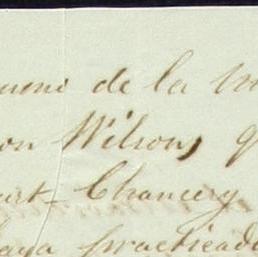 de la
on Wilson, q
Chancery
haya practicado